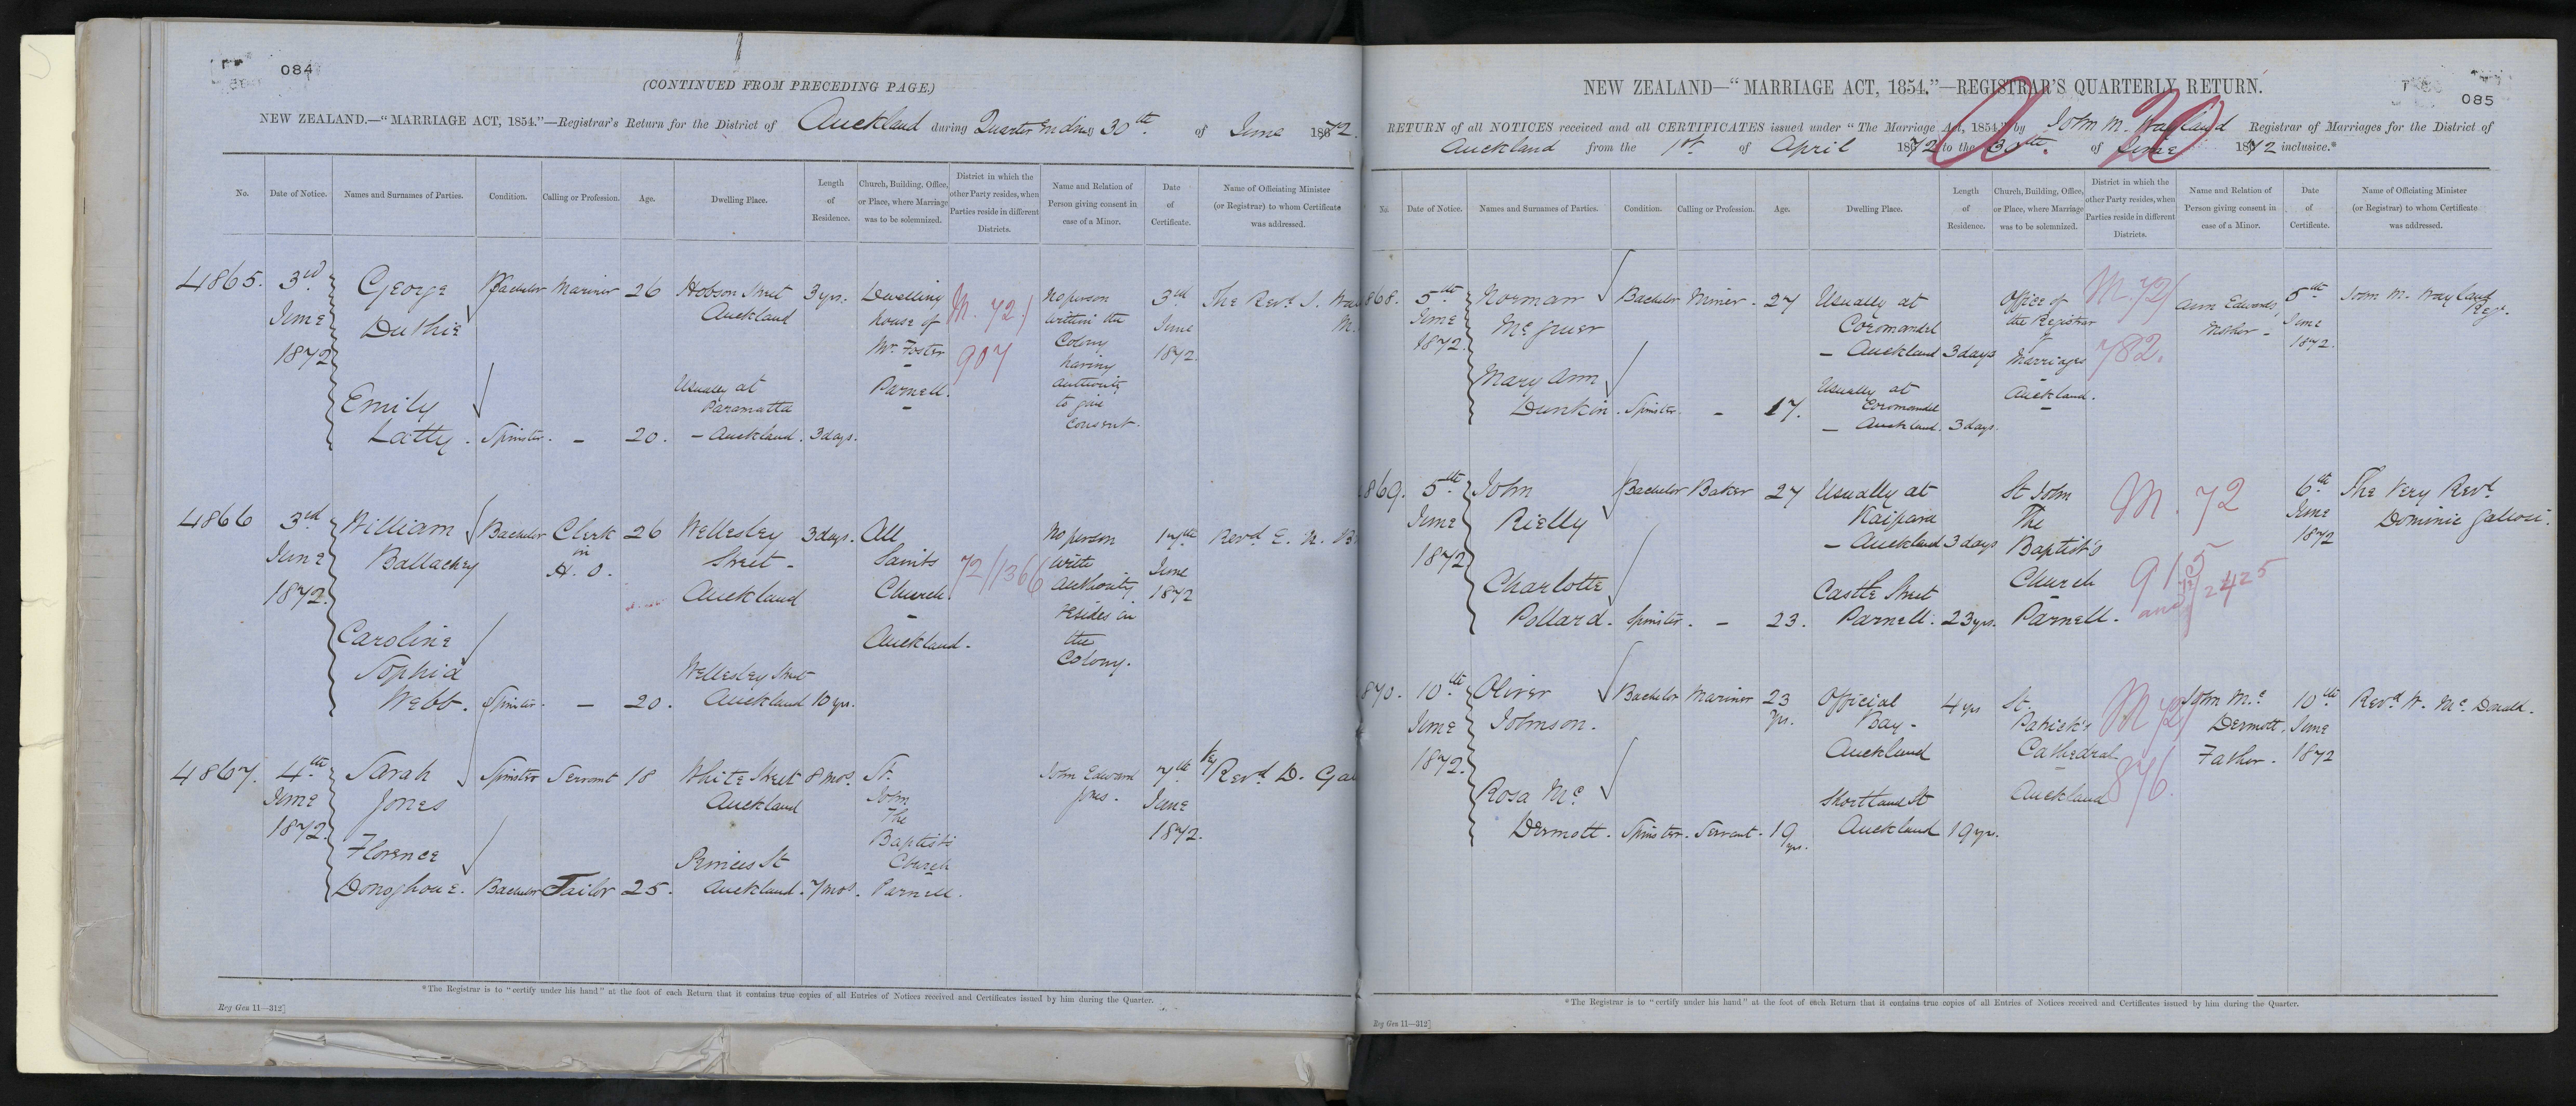 084
(CONTINUED FROM PRECEDING PAGE.)
NEW ZEALAND.—"MARRIAGE ACT, 1854."—Registrar's Return for the District of Auckland during Quarter Ending 30th of June 1872.
No. Date of Notice. Names and Surnames of Parties. Condition. Calling or Profession. Age. Dwelling Place. Length of Residence. Church, Building, Office, or Place, where Marriage was to be solemnized. District in which the other Party resides, when Parties reside in different Districts. Name and Relation of Person giving consent in case of a Minor. Date of Certificate. Name of Officiating Minister (or Registrar) to whom Certificate was addressed.
4865. 3rd June 1872
George Duthie Bachelor Mariner 26 Hobson Street Auckland 3 yrs.
Emily Latty. Spinster. – 20. Usually at Paramatta – Auckland. 3 days.
Dwelling house of Mr. Foster – Parnell. –
M. 72/907
No person within the Colony having authority to give consent.
3rd June 1872.
The Revd. J.
4866 3rd June 1872.
William Ballachey Bachelor Clerk in A. O. 26 Wellesley Street – Auckland 3 days.
Caroline Sophia Webb. Spinster. – 20. Wellesley Street Auckland 10 yrs.
All Saints Church – Auckland.
72/1366
No person with authority resides in the Colony.
17th June 1872
Revd. E. N. B
4867. 4th June 1872.
Sarah Jones Spinster Servant 18 White Street Auckland 8 mos.
Florence Donoghoue. Bachelor Tailor 25. Princes St Auckland. 7 mos.
St. John The Baptist's Church Parnell.
John Edward Jones.
7th June 1872.
Vy Revd D. Ga
*The Registrar is to "certify under his hand" at the foot of each Return that it contains true copies of all Entries of Notices received and Certificates issued by him during the Quarter.
Reg Gen 11—312]
085
NEW ZEALAND—"MARRIAGE ACT, 1854."—REGISTRAR'S QUARTERLY RETURN.
RETURN of all NOTICES received and all CERTIFICATES issued under "The Marriage Act, 1854," by John M. Wayland Registrar of Marriages for the District of
Auckland from the 1st of April 1872 to the 30th of June 1872 inclusive.*
20
No. Date of Notice. Names and Surnames of Parties. Condition. Calling or Profession. Age. Dwelling Place. Length of Residence. Church, Building, Office, or Place, where Marriage was to be solemnized. District in which the other Party resides, when Parties reside in different Districts. Name and Relation of Person giving consent in case of a Minor. Date of Certificate. Name of Officiating Minister (or Registrar) to whom Certificate was addressed.
868. 5th June 1872.
Norman Mc Iuer Bachelor Miner. 27 Usually at Coromandel – Auckland 3 days
Mary Ann Dunkin. Spinster. – 17. Usually at Coromandel – Auckland. 3 days.
Office of the Registrar of Marriages – Auckland. –
M. 72/782.
Ann Edwards, Mother –
5th June 1872.
John M. Wayland Regr.
869. 5th June 1872
John Rielly Bachelor Baker 27 Usually at Kaipara – Auckland 3 days
Charlotte Pollard. Spinster. – 23. Castle Street Parnell. 23 yrs.
St John The Baptist's Church Parnell.
M. 72
915
and 72/2425
6th June 1872
The Very Revd. Dominic Galiossi.
870. 10th June 1872.
Oliver Johnson. Bachelor Mariner 23 yrs. Official Bay – Auckland 4 yrs
Rosa Mc Dermott. Spinster. Servant. 19 yrs. Shortland St Auckland 19 yrs.
St. Patrick's Cathedral Auckland
M 72/876.
John Mc Dermott, Father.
10th June 1872
Revd. W. Mc Donald.
*The Registrar is to "certify under his hand" at the foot of each Return that it contains true copies of all Entries of Notices received and Certificates issued by him during the Quarter.
Reg Gen 11—312]